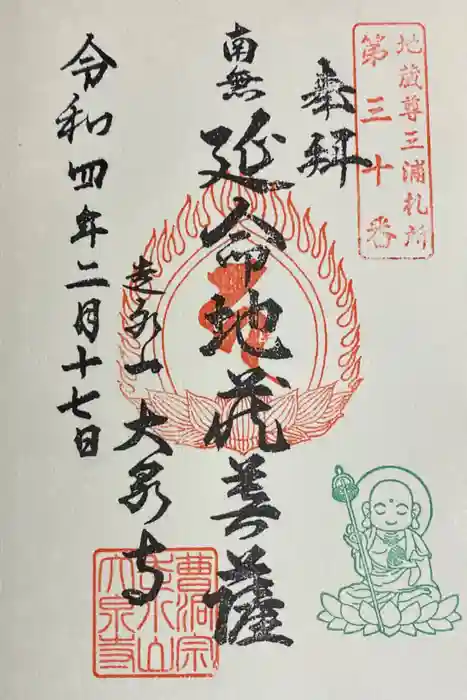 地蔵尊三浦札所
第三十番
奉拝
南無
延命地蔵菩薩
走水山大泉寺
令和四年二月十七日
曹洞宗
走水山
大泉寺